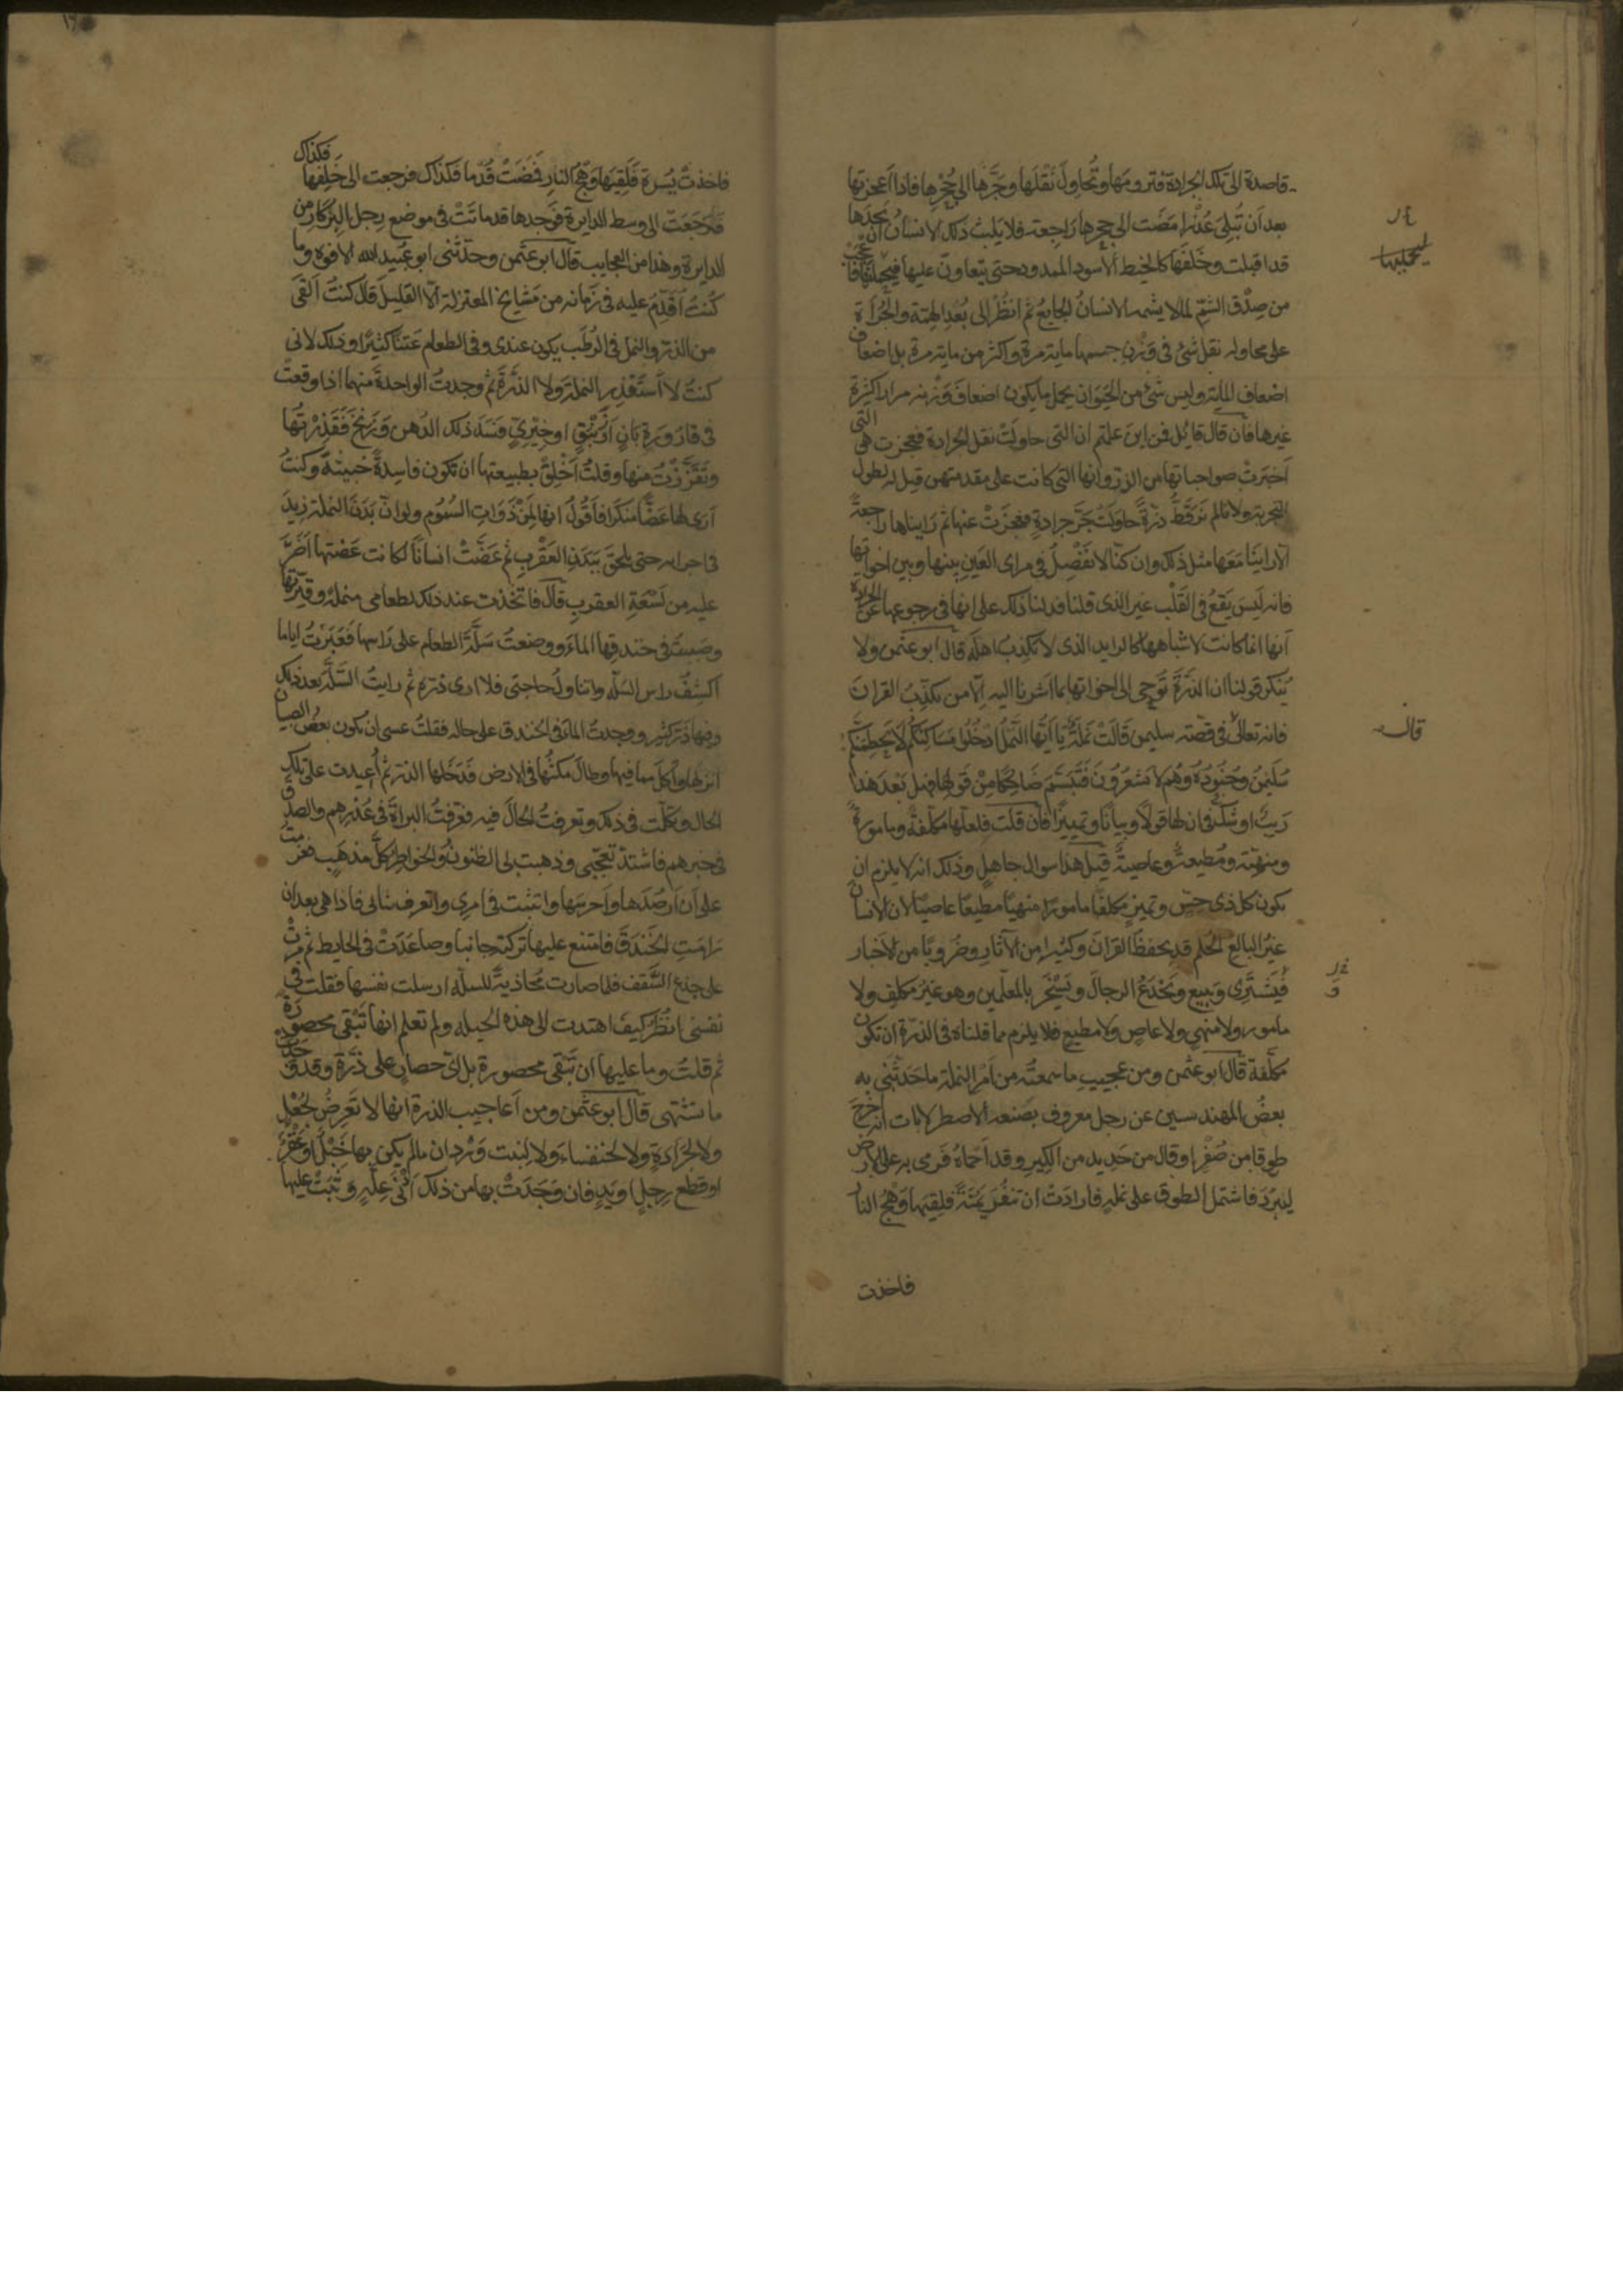 قاصدة الى تلك الجرادة فترومها وتُحاوِل نَقْلَها وجَرَّها الى جُحْرِها فاذا اَعْجزتها
بعد اَن تُبلِىَ عُذْرا مَضَت الى جحرها رَاجِعة فلا يَلبث ذلك الانسانُ ان يَجِدَها
قد اقبلت وخَلفَها كالخيط الاسود الممدود حتى يتعاونّ عليها فيحملنها فاعجب
من صِدْق الشمّ لما لا يشمه الانسانُ الجايعُ ثم انظُرْ الى بُعْدِ الهمّة والجُرْاَة
على محاوله نقل شئ فى وَزْنِ جسمها ماية مرة واكثر من ماية مرة بل اضعاف
اضْعاف الماية وليس شئ من الحَيَوَان يحمل ما يكون اضعافَ وَزْنه مرارا كثيرة
غيرها فان قال قايل فمن اينَ علمتم ان التى حاولَتْ نقل الجرادة فعجزت هى التى
اَخبَرَتْ صواحباتها من الذرّ وانها التى كانت على مقدمتهن قيل له لطول
التجربة ولانا لم نَرَ قطُّ ذرّةً حاولَتْ جَرَّ جرادةٍ فعجزَتْ عنها ثم رَايناها راجعةً
الا راينَا مَعَها مثل ذلك وان كنّا لا نَفْصِلُ فى مراى العَينِ بينها وبين اخواتها
فانه لَيسَ يَقعُ فى القَلْب غير الذى قلنا فدلنا ذلك على انها فى رجوعها عن الجرادة
اَنها انما كانت لاشباهها كالرايد الذى لا تكذِبُ اهلَه قال ابو عثمن ولا
يُنكر قولنا ان الذرَّةَ تُوحِى الى اخواتها بما اشرنا اليه اِلّا من يكذِّبُ القرانَ
فانه تعالىٰ فى قصّة سليمن قَالَتْ نَمْلَةٌ يَا اَيُّهَا النَّمْلُ ادْخُلُوا مَسَاكِنَكُمْ لَا يَحْطِمَنَّكُمْ
سُلَيْمٰنُ وَجُنُودُهُ وَهُمْ لَا يَشْعُرُونَ فَتَبَسَّمَ ضَاحِكًا مِنْ قَوْلِهَا فهل بَعْدَ هٰذا
رَيبٌ او شكٌّ فى ان لها قولًا وبيانًا وتمييزًا فان قلت فلعلّها مكلّفةٌ ومامورةٌ
ومنهيّة ومُطيعةٌ وعاصيةٌ قيل هذا سوال جاهلٍ وذلك انه لا يلزم ان
يكون كل ذى حسّ وتمييزٍ مكلفًا مامورًا منهيّا مطيعًا عاصيًا لان الانسان
غيرُ البالغ الحلم قد يحفظُ القرانَ وكثيرا من الآثارِ وضُروبًا من الاخبار
فيَشترى وَيبيع ويَخْدَعُ الرجالَ ويَسْخَر بالمعلّمين وهو غيرُ مكلفٍ ولا
مامور ولا منهي ولا عاصٍ ولا مطيعٍ فلا يلزم مما قلناه فى الذرّة ان تكون
مكلّفة قال ابو عثمن ومن عجيبِ ما سمعتُه من اَمْر النملة ما حَدثَّنى به
بعضُ المهندسين عن رجل معروف بصَنعه الاصطرلابات انه اخرج
طوقا من صُفْرٍ او قال من حَدِيد من الكيرِ وقد اَحماهُ فَرمى به على الارض
ليَبرُدَ فاشتمل الطوق على نملةٍ فارادَتْ ان تنفُرَ يَمْنةً فلقيها وَهْجُ النار
فاخذت
ليحملنها
قال
فاخذتْ يُسرةً فلَقِيَها وَهْجُ النارِ فمضَتْ قُدما فكذاك فرجعت الى خَلِفها فكذاك
فرَجَعَت الى وسط الدايرة فوَجدها قد ماتَتْ فى موضع رِجل البِركارِ من
الدايرة وهذا من العجايب قال ابو عثمن وحدّثنى ابو عُبيد الله الافوه وما
كُنتُ اُقدِّمُ عليه فى زَمانه من مَشايخ المعتزلة الّا القليلَ قال كنتُ اَلقىَ
من الذرّ والنمل فى الرُطَب يكون عندى وفى الطعام عنتًا كثيرًا وذلك لانى
كنتُ لا اَستَقذِر النملة ولا الذّرَّةَ ثم وجدتُ الواحدةَ منهما اذا وقعتْ
فى قارُورَةِ بَانٍ اَو زِنْبقٍ او خِيْرِىّ فسَدَ ذلك الدُهن وَزَنِخَ فَقَذِرْتُها
وتقزَّزْتُ منها وقلتُ اَخْلِقْ بطبيعتها ان تكون فاسِدةً خَبيثةً وكنتُ
اَرَى لها عَضًّا منكرا فاَقُولُ انها لَمِنْ ذَوَاتِ السُمُومِ ولو انّ بَدَنَ النملة زِيدَ
فى اجزايه حتى يلحقَ ببَدَنِ العَقْربِ ثم عَضَّتْ انسانًا لكانت عَضّتها اَضرَّ
عليه من لَسْعَةِ العقربِ قال فاتّخذت عند ذلك لطعامى منملةً وقيّرتها
وصَبَبتُ فى خندقها الماءَ ووضعتُ سَلّةَ الطعام على رَاسها فَغَبرتُ اياما
اكشِفُ راسَ السَلّه واتناولُ حاجتى فلا ارى ذرّةً ثم رايتُ السَلّة بعد ذلك
وفيها ذرّ كثير ووجدتُ الماءَ فى الخندق على حاله فقلتُ عسى ان يكون بعضُ الصبيان
انزلها واكَلَ مما فيها وطالَ مكثُها فى الارض فدَخَلها الذر ثم اُعيدت على تلك
الحال وتكلّمت فى ذلك وتعرفتُ الحالَ فيه فعَرَفتُ البراةَ فى عُذرهم والصدق
فى خبرهم فاشتدّ تعجّبى وذهبت بى الظنونُ والخواطرُ كلَّ مذهبٍ فعزمتُ
على اَن اَرصُدَها واَحرسَها واتثبت فى امرى والتعرف شانى فاذا هى بعد ان
رَامَتِ الخَندَقَ فامتنع عليها تركته جانبا وصاعَدَتْ فى الحايط ثم مرّتْ
على جذع السَّقف فلما صارت مُحاذيةً للسلّة ارسلت نفسها فقلت فى
نفسى انظُرْ كيفَ اهتدت الى هذه الحيله ولم تعلم انها تَبقى محصورَةً
ثم قلتُ وما عليها ان تَبقَى محصورة بل اىّ حصارٍ على ذَرّة وقد وَجدَت
ما تشتهى قال ابو عثمن ومن اَعاجيب الذرة انها لا تَعرِضُ لجُعَلٍ
ولا لجَرَادةٍ ولا لخنفساءَ ولا لِبنت وَرْدان ما لم يكن بها خَبْلٌ او عَقْرٌ
او قطع رِجلٍ او يَدٍ فان وَجَدَتْ بها من ذلك اَدْنىٰ عِلّةٍ وَثَبَتْ عليها